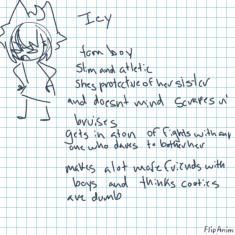 Icy
tom boy
Slim and atletic
Shes protective of her sister
and doesnt mind scrapes n'
bruises
gets in aton of fights with any
one who dares to bother her
makes alot more friends with
boys and thinks cooties
are dumb
FlipAnim